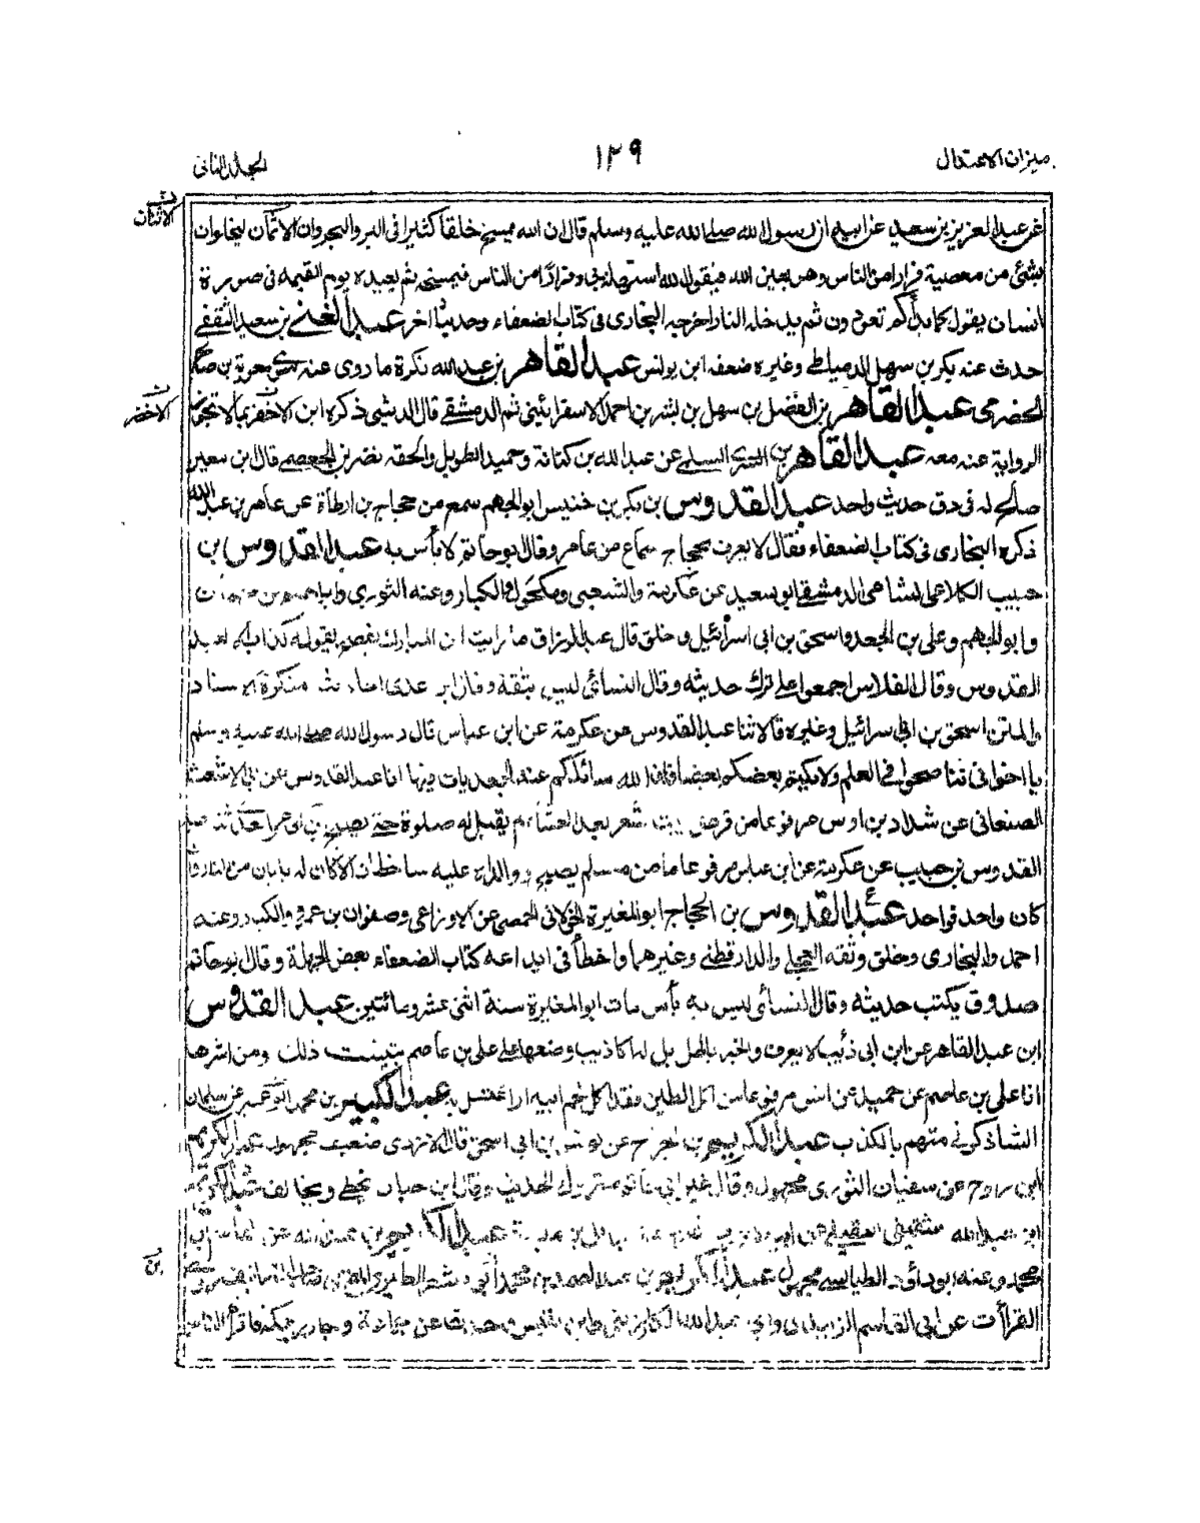 ميزان الاعتدال
١٢٩
المجلد الثانى
عن عبد العزيز بن سعيد عن ابيه ان رسول الله صلى الله عليه وسلم قال ان الله مسخ خلقا كثيرا فى البر والبحر وان الانسان ليخلوان
بشئ من معصية فرارا من الناس وهن بعين الله فيقول الله استهان بى وفرارا من الناس فيمسخه ثم يعيده يوم القيمه فى صورة
انسان يقول كما بدأكم تعودون ثم يدخله النار اخرجه البخارى فى كتاب الضعفاء وحديثا اخر عبد الغنى بن سعيد الثقفى
حدث عنه بكر بن سهل الدمياطى وغيره ضعفه ابن يونس عبد القاهر بن عبد الله نكرة ما روى عنه سوى معوية بن صالح
الحضرمى عبد القاهر بن الفضل بن سهل بن بشر بن احمد الاسفرائينى ثم الدمشقى قال الدبيثى ذكره ابن الاخضر بما لا تجوز
الرواية عنه معه عبد القاهر بن السرى السلمى عن عبد الله بن كنانة وحميد الطويل والحقه نضر بن الجهضمى قال ابن معين
صالح له فى دق حديث واحد عبد القدوس بن بكر بن خنيس ابو الجهم سمع من حجاج بن ارطاة عن عامر بن عبد الله
ذكره البخارى فى كتاب الضعفاء فقال لا يعرف لحجاج سماع من عامر وقال ابو حاتم لا بأس به عبد القدوس بن
حبيب الكلاعى الشامى الدمشقى ابو سعيد عن عكرمة والشعبى ومكحول والكبار وعنه الثورى وابراهيم بن طهمان
وابو الجهم وعلى بن الجعد واسحق بن ابى اسرائيل وخلق قال عبد الرزاق ما رايت ابن المبارك يفصح بقوله كذاب الا لعبد
القدوس وقال الفلاس اجمعوا على ترك حديثه وقال النسائى ليس بثقة وقال ابن عدى احاديثه منكرة الاسناد
والمتن اسحق بن ابى اسرائيل وغيره قالا ثنا عبد القدوس عن عكرمة عن ابن عباس قال رسول الله صلى الله عليه وسلم
يا اخوانى تناصحوا فى العلم ولا يكتم بعضكم بعضا فان الله سائلكم عنه الجعديات فيها انا عبد القدوس عن ابى الاشعث
الصنعانى عن شداد بن اوس مرفوعا من قرض بيت شعر بعد العشاء لم يقبل له صلوة حتى يصبح
القدوس بن حبيب عن عكرمة عن ابن عباس مرفوعا ما من مسلم يصبح ووالداه عليه ساخطان الا كان له بابان من النار وان
كان واحد فواحد عبد القدوس بن الحجاج ابو المغيرة الخولانى الحمصى عن الاوزاعى وصفوان بن عمرو والكبار وعنه
احمد والبخارى وخلق وثقه العجلى والدارقطنى وغيرهما واخطأ فى ايداعه كتاب الضعفاء بعض الجهلة وقال ابو حاتم
صدوق يكتب حديثه وقال النسائى ليس به بأس مات ابو المغيرة سنة اثنى عشر ومائتين عبد القدوس
ابن عبد القاهر عن ابن ابى ذئب لا يعرف والخبر باطل بل له اكاذيب وضعها على على بن عاصم بتينت ذلك ومن اشرها
انا على بن عاصم عن حميد عن انس مرفوعا من اكل الطين فقد اكل لحم ابيه او اغتسل به عبد الكبير بن محمد ابو عمير عن سلمان
الشاذكونى متهم بالكذب عبد الكريم بن الجراح عن يونس بن ابى اسحق قال الازدى ضعيف مجهول عبد الكريم
ابن روح عن سفيان الثورى مجهول وقال غير ابى حاتم متروك الحديث وقال ابن حبان يخطى ويخالف عبد الكريم
ابن عبد الله شقيق العقيلى عن ابيه عبد الكريم بن
محمد وعنه ابو داؤد الطيالسى مجهول عبد الكريم بن عبد الصمد بن محمد ابى معشر الطبرى المقرى
القرأت عن ابى القاسم الزيدى
الانسان
الاخضر
بن